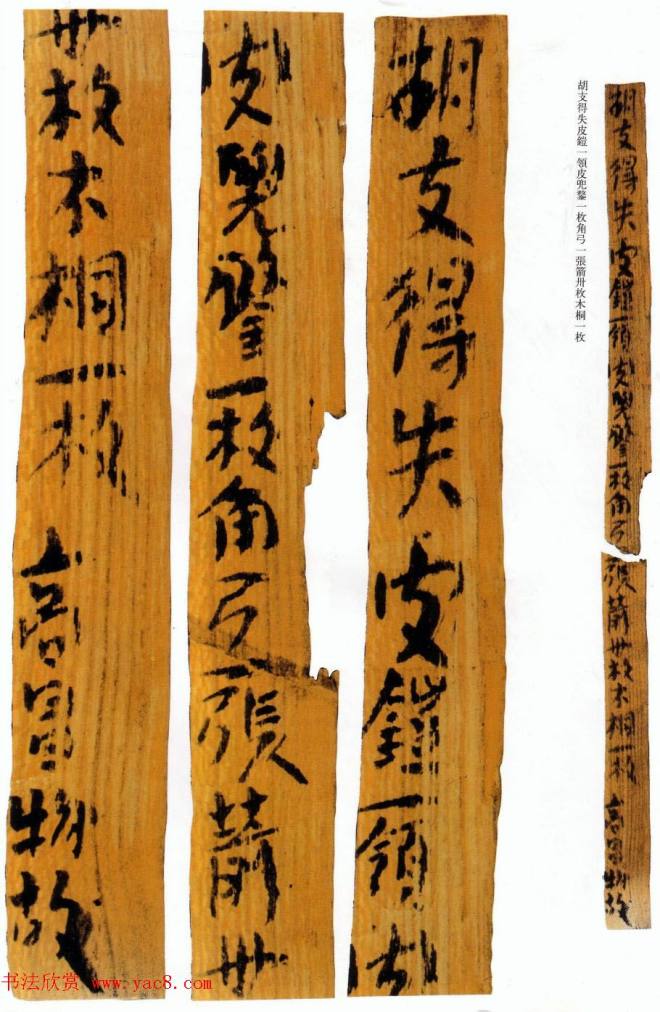 胡支得失皮鎧一領皮兜鍪一枚角弓一張箭卅枚木桐一枚
胡支得失皮鎧一領皮兜鍪一枚角弓一張箭卅枚木桐一枚 高昌物故
胡支得失皮鎧一領皮
皮兜鍪一枚角弓一張箭卅
卅枚木桐一枚 高昌物故
书法欣赏 www.yac8.com